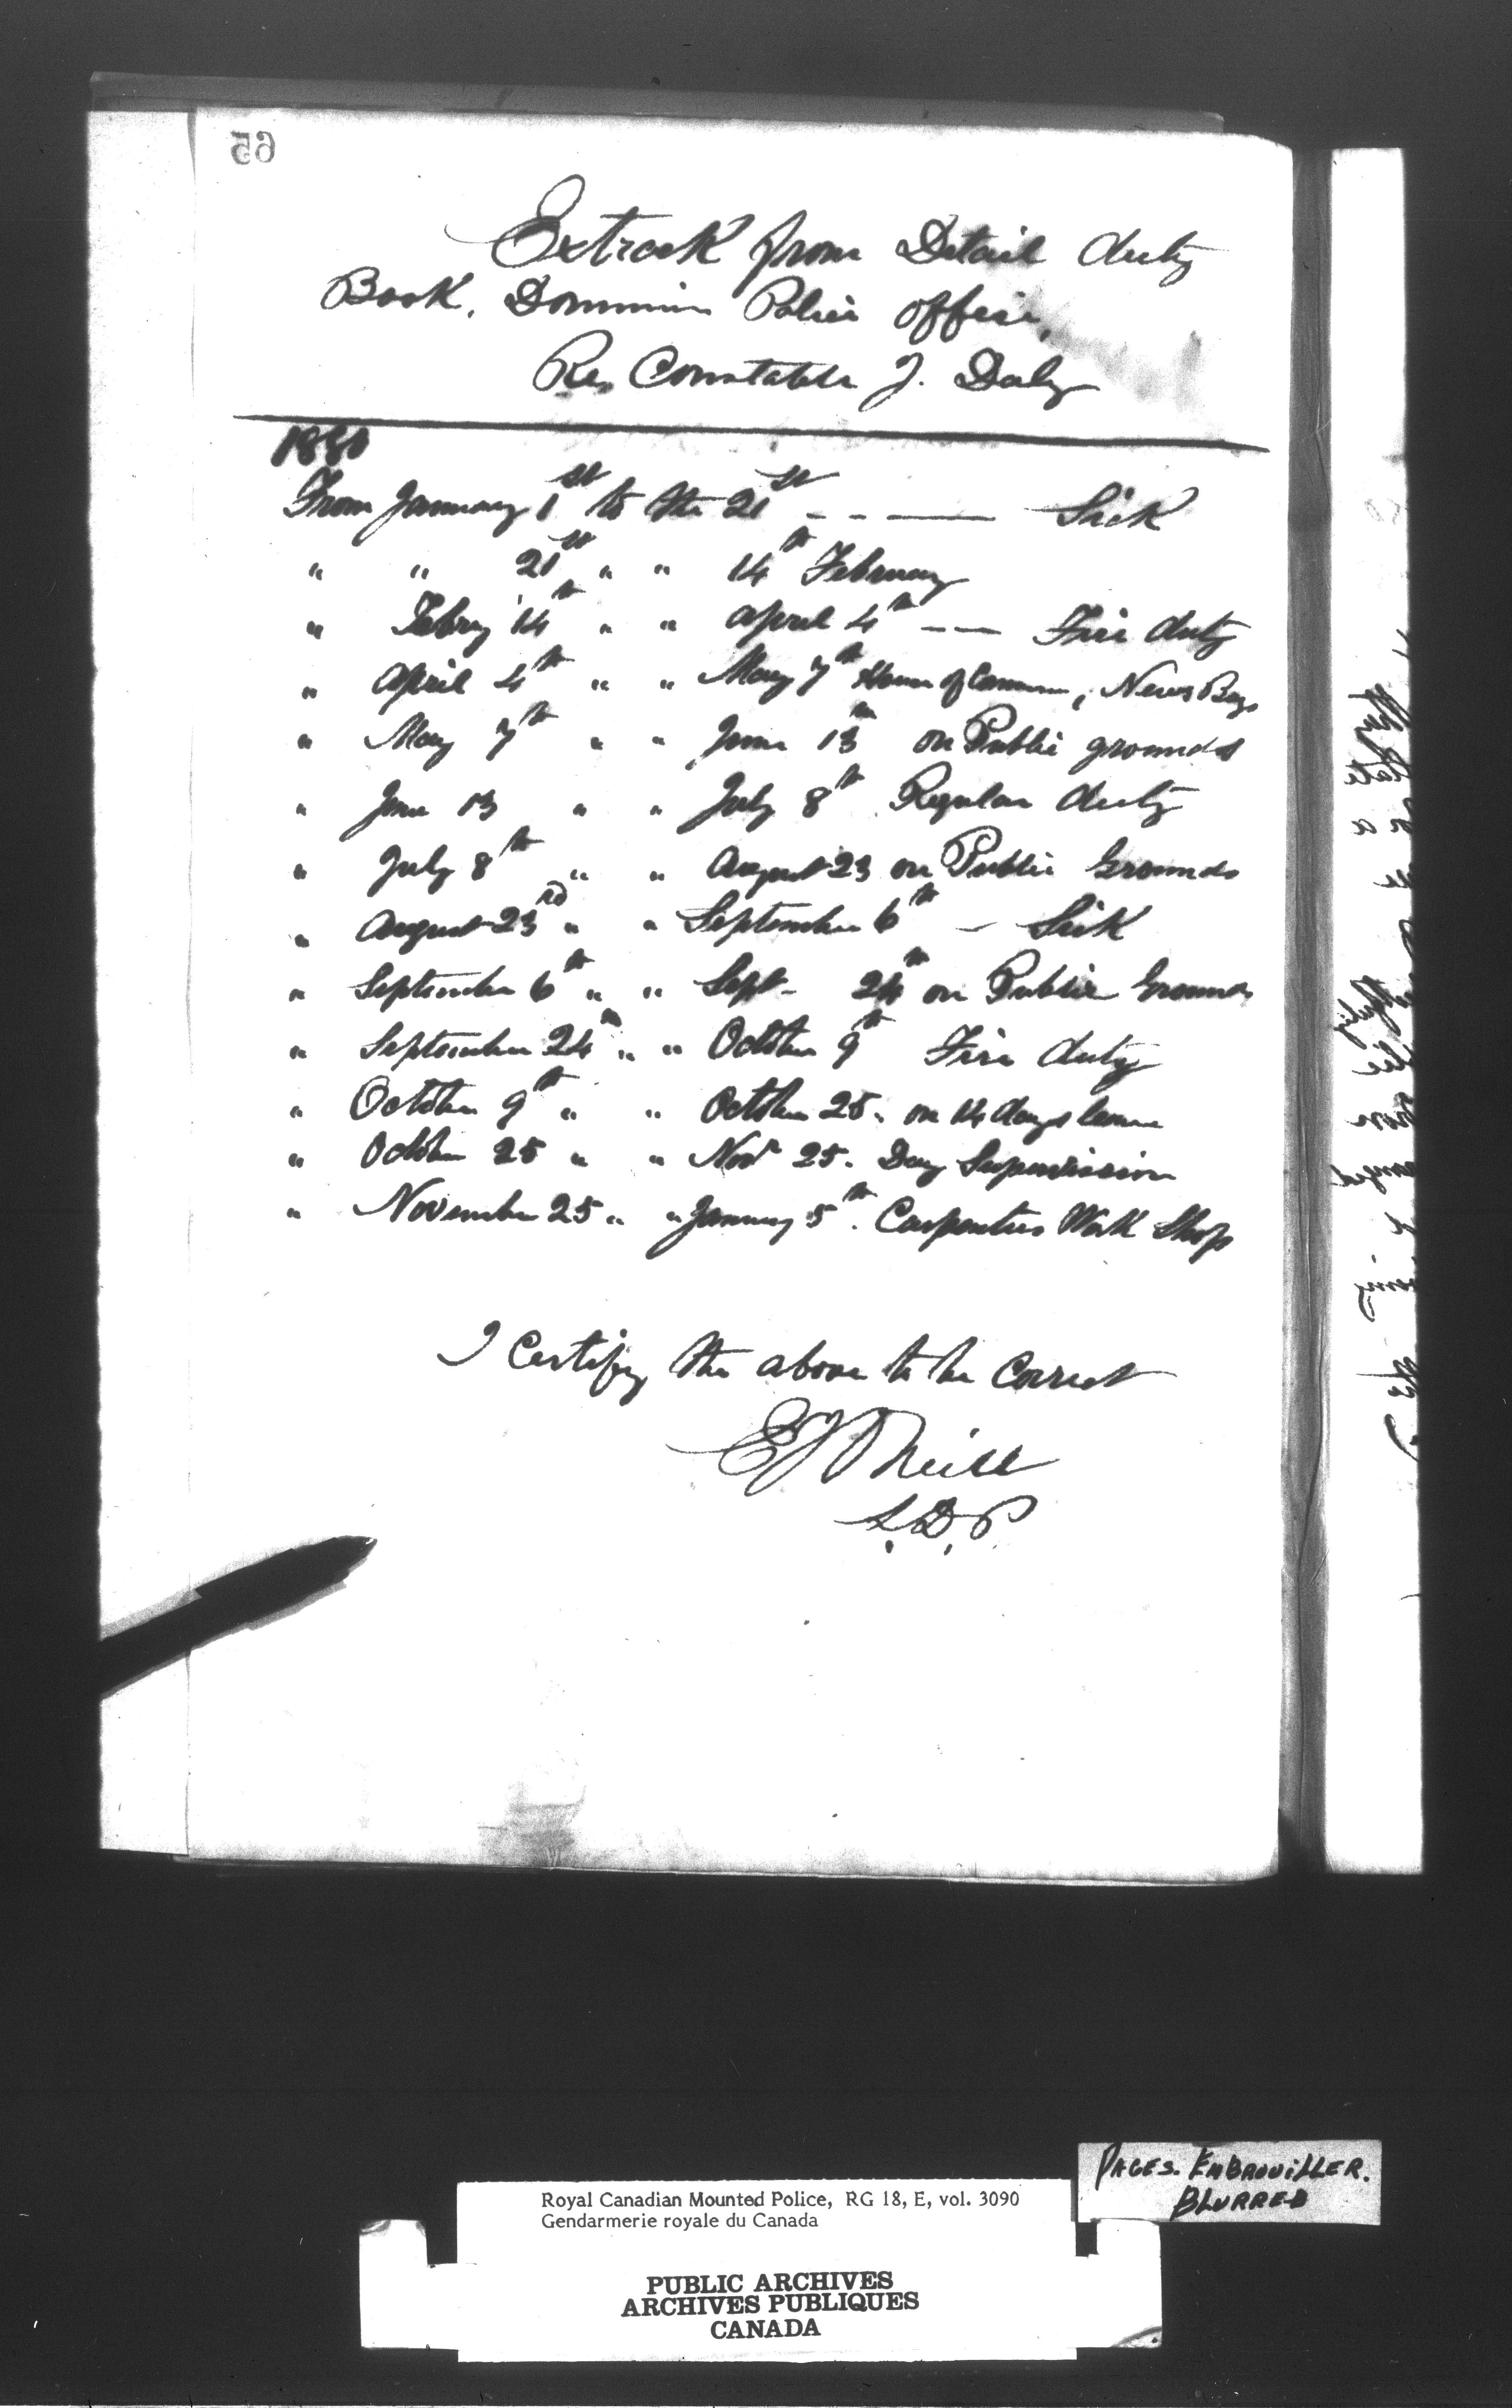 65
Extract from Detail duty
Book, Dominion Police office,
Re, Constable J. Daly
From January 1st to the 21st - - — Sick
" " 21st " " 14th February
" Febry 14th " " April 4th — — Fire duty
" April 4th " " May 7th House of Commons, News Boys
" May 7th " " June 13th on Public grounds
" June 13 " " July 8th Regular duty
" July 8th " " August 23 on Public Grounds
" August 23rd " " September 6th - Sick
" September 6th " " Sept - 24th on Public Grounds
" September 24th " " October 9th Fire duty
" October 9th " " October 25. on 14 days leave
" October 25 " " Novr 25. Day Supervision
" November 25 " " January 5th. Carpenters Work Shop
I Certify the above to be Correct
E J O'Neill
S.D.P.
PAGES. EMBROUILLER.
BLURRED
Royal Canadian Mounted Police, RG 18, E, vol. 3090
Gendarmerie royale du Canada
PUBLIC ARCHIVES
ARCHIVES PUBLIQUES
CANADA